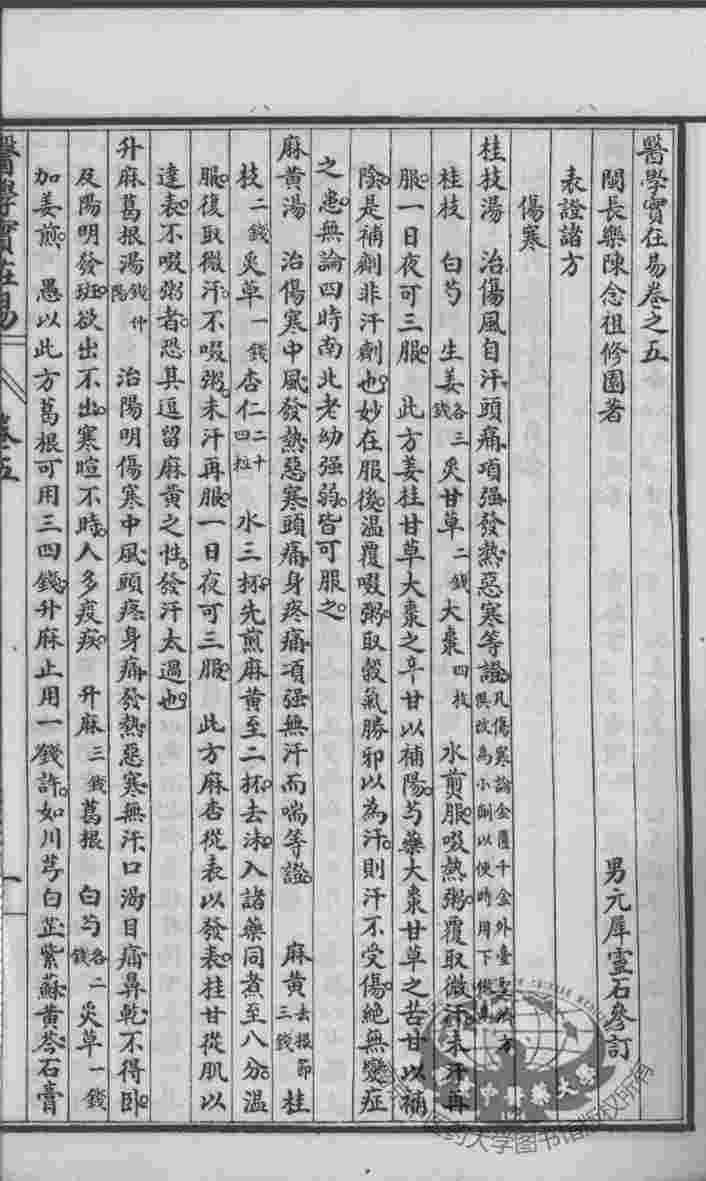 醫學實在易卷之五
閩長樂陳念祖修園著　男元犀靈石參訂
表證諸方
傷寒
桂枝湯　治傷風自汗頭痛項强發熱惡寒等證凡傷寒論金匱千金外臺聖方俱改為小劑以便時用下倣
桂枝　白芍　生姜各三錢　炙甘草二錢　大棗四枚　水煎服啜熱粥覆取微汗未汗再
服一日夜可三服　此方姜桂甘草大棗之辛甘以補陽芍藥大棗甘草之苦甘以補
陰是補劑非汗劑也妙在服後温覆啜粥取穀氣勝邪以為汗則汗不受傷絕無變症
之患無論四時南北老幼强弱皆可服之
麻黃湯　治傷寒中風發熱惡寒頭痛身疼痛項强無汗而喘等證　麻黃去根節三錢　桂
枝二錢　炙草一錢　杏仁二十四粒　水三杯先煎麻黃至二杯去沫入諸藥同煮至八分温
服復取微汗不啜粥未汗再服一日夜可三服　此方麻杏從表以發表桂甘從肌以
達表不啜粥者恐其逗留麻黃之性發汗太過也
升麻葛根湯錢仲陽　治陽明傷寒中風頭疼身痛發熱惡寒無汗口渴目痛鼻乾不得臥
及陽明發班欲出不出寒暄不時人多疫疾　升麻三錢　葛根　白芍各二錢　炙草一錢
加姜煎　愚以此方葛根可用三四錢升麻止用一錢許如川芎白芷紫蘇黃芩石膏
醫學實在易　卷五　一
中醫藥大學
医药大学图书馆版权所有